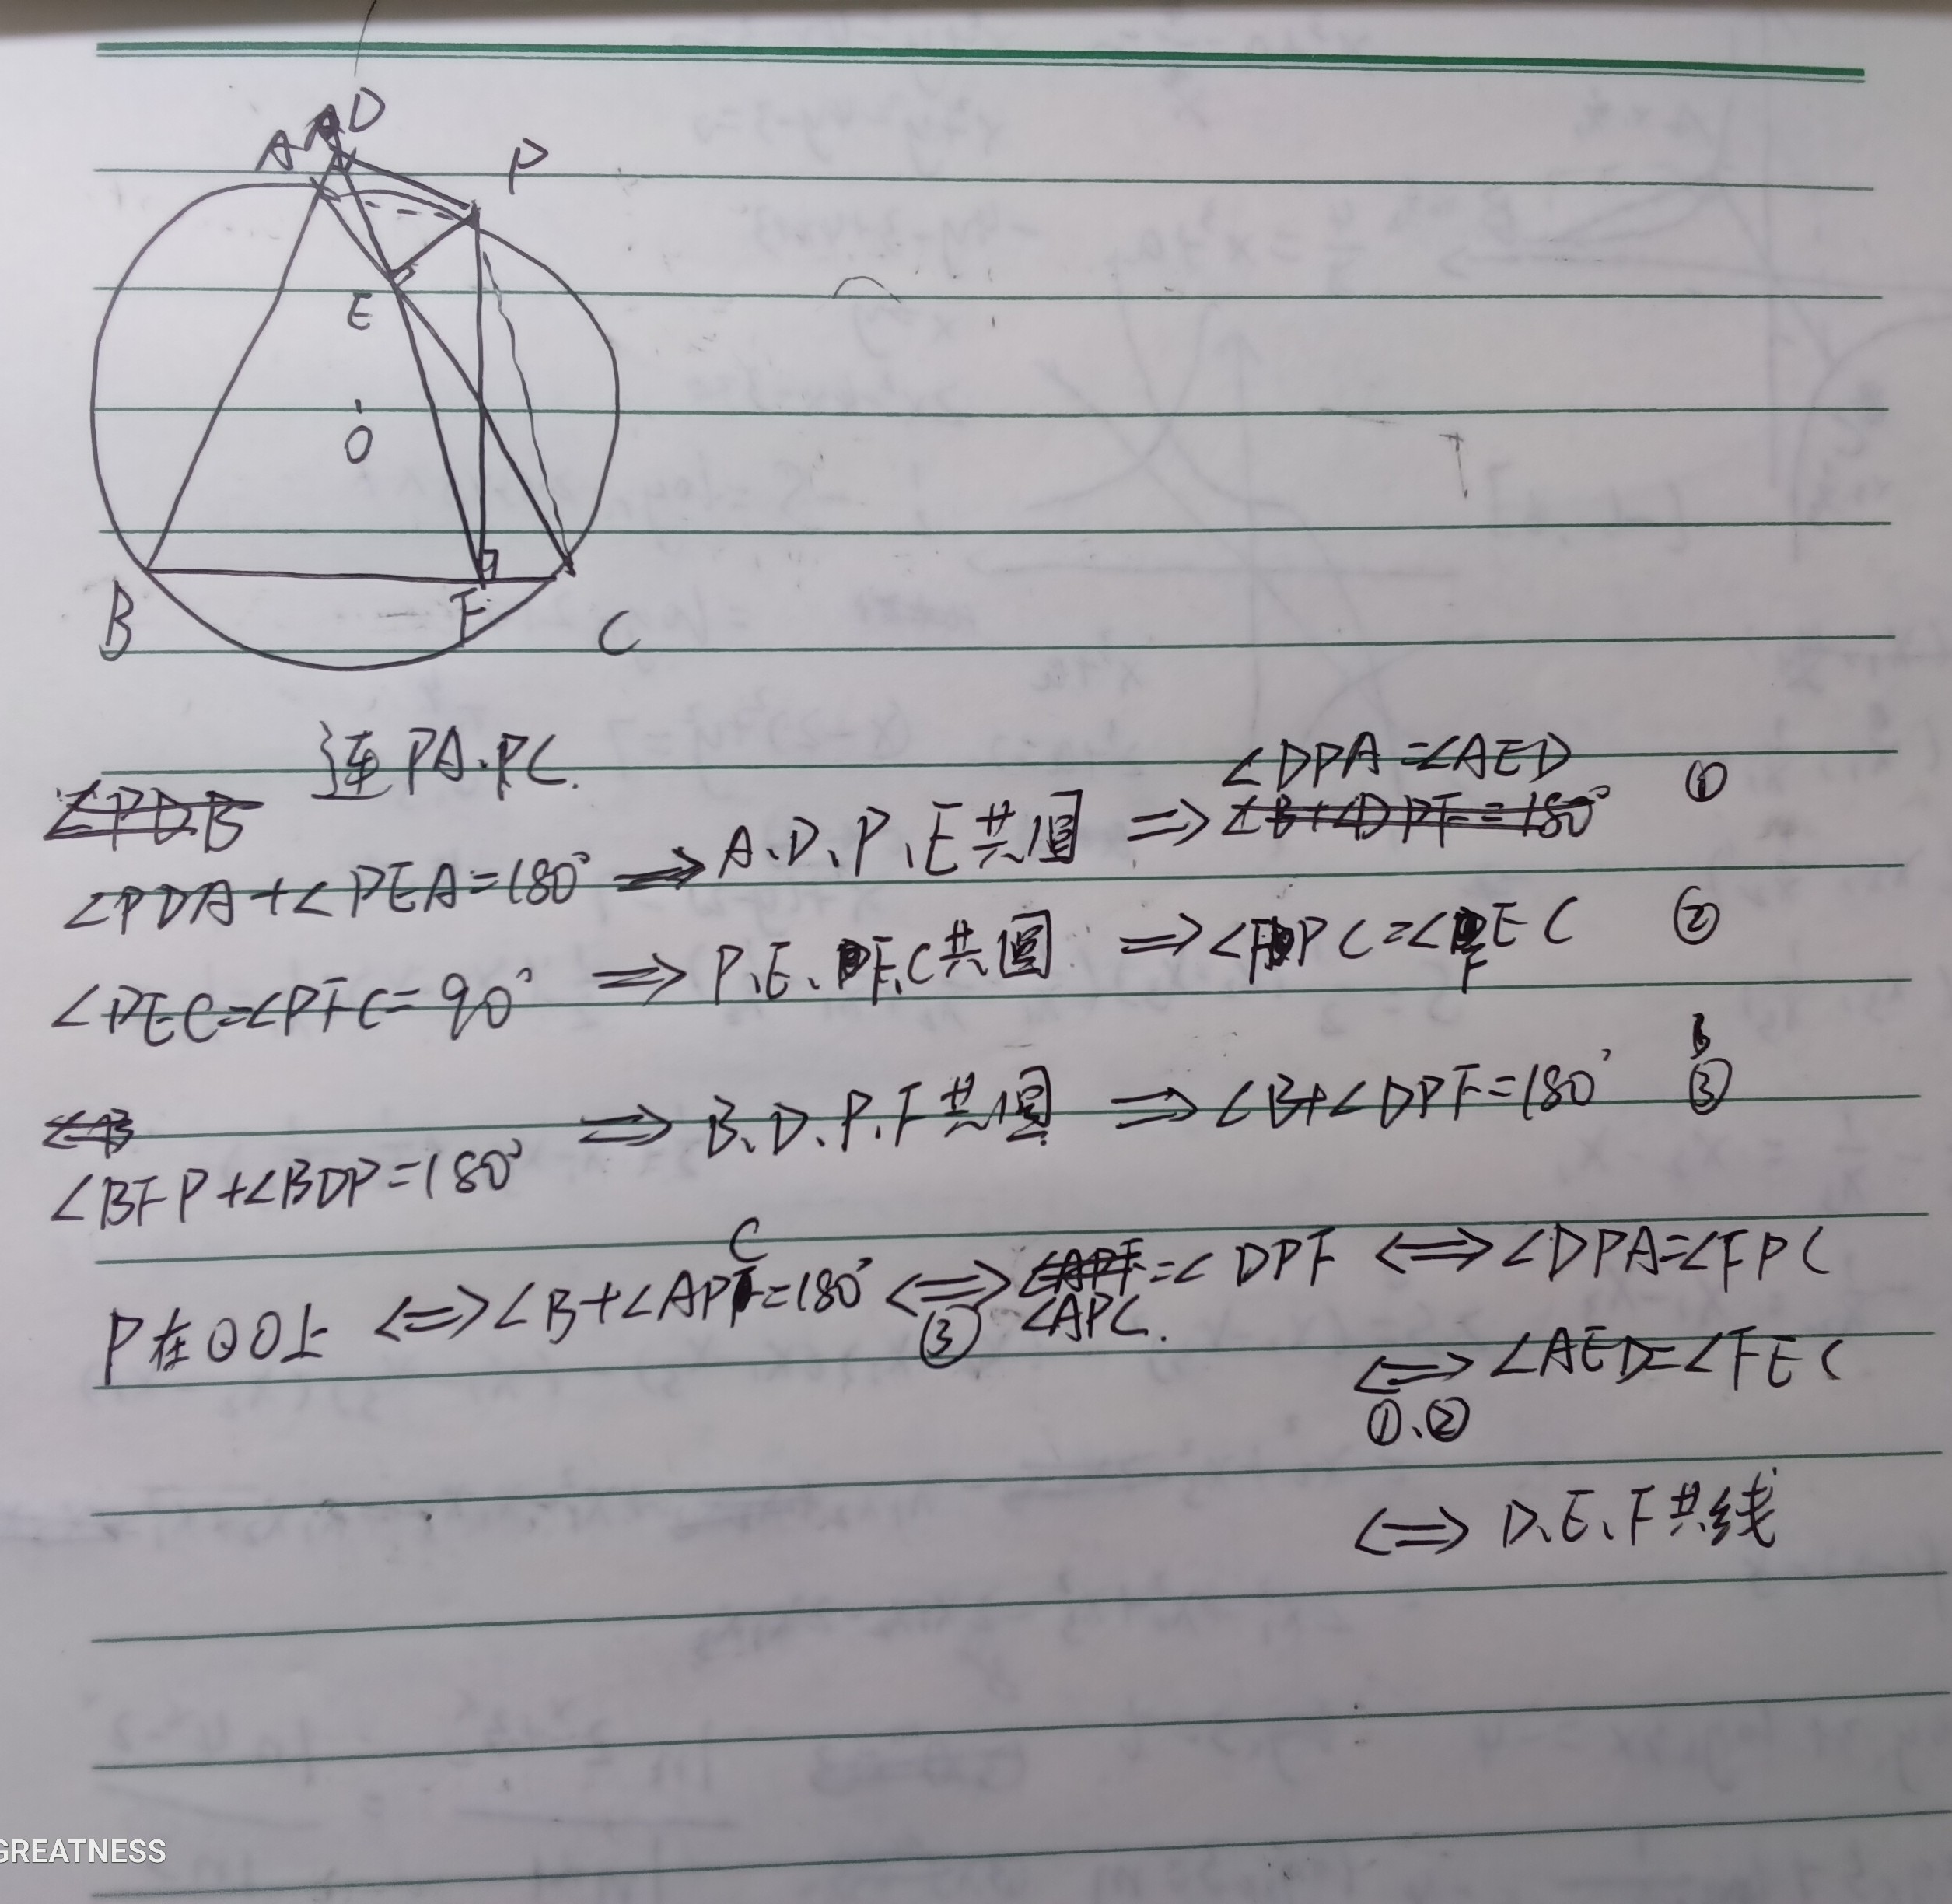 A D
P
E
O
B F C
连PA、PC.
∠DPA=∠AED ①
∠PDA+∠PEA=180° ⇒ A、D、P、E共圆 ⇒
∠PEC=∠PFC=90° ⇒ P、E、F、C共圆 ⇒ ∠FPC=∠FEC ②
∠BFP+∠BDP=180° ⇒ B、D、P、F共圆 ⇒ ∠B+∠DPF=180° ③
P在⊙O上 ⇔ ∠B+∠APC=180° ⇔③ ∠APC=∠DPF ⇔ ∠DPA=∠FPC
⇔①、② ∠AED=∠FEC
⇔ D、E、F共线
GREATNESS